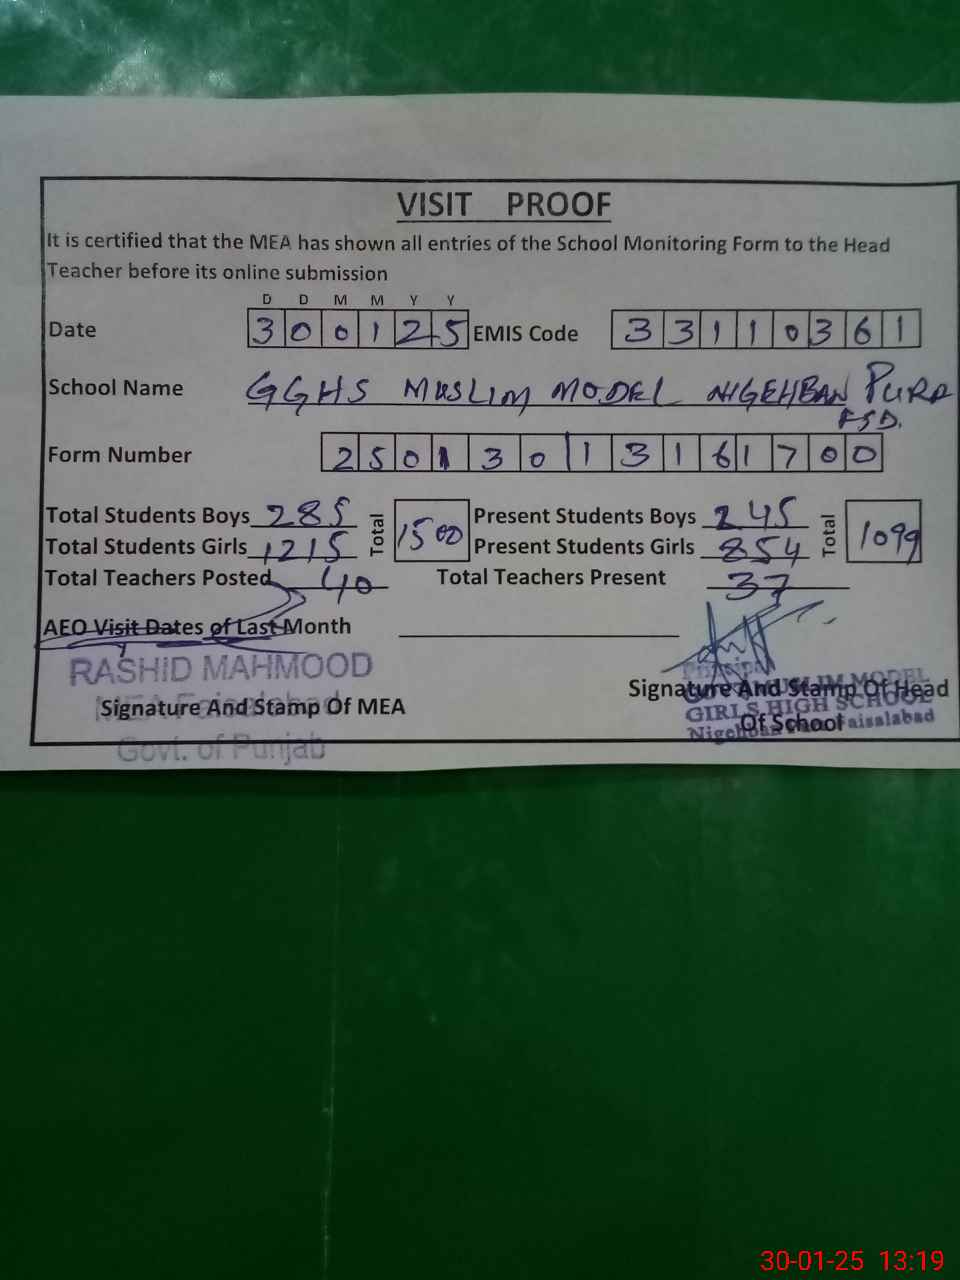 VISIT PROOF
It is certified that the MEA has shown all entries of the School Monitoring Form to the Head
Teacher before its online submission
D D M M Y Y
Date 3 0 0 1 2 5 EMIS Code 3 3 1 1 0 3 6 1
School Name GGHS MUSLIM MODEL NIGEHBAN PURA
FSD.
Form Number 2 5 0 1 3 0 1 3 1 6 1 7 0 0
Total Students Boys 285 Total 1500 Present Students Boys 245 Total 1099
Total Students Girls 1215 Present Students Girls 854
Total Teachers Posted 40 Total Teachers Present 37
AEO Visit Dates of Last Month
RASHID MAHMOOD
MEA Faisalabad
Signature And Stamp Of MEA
Govt. of Punjab
Principal
MUSLIM MODEL
Signature And Stamp Of Head
GIRLS HIGH SCHOOL
Of School
Nigehban Faisalabad
30-01-25 13:19